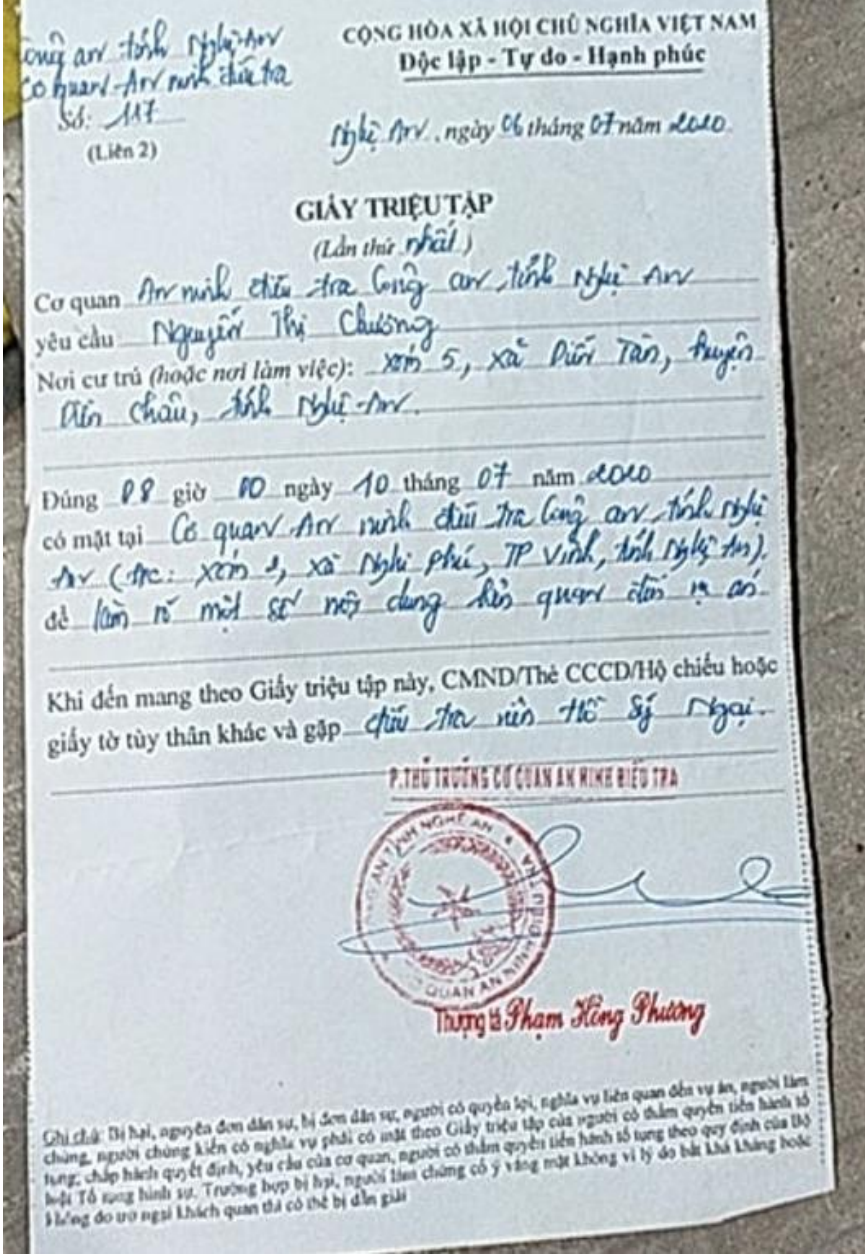 Công an tỉnh Nghệ An
Cơ quan An ninh điều tra
Số: 117
(Liên 2)
CỘNG HÒA XÃ HỘI CHỦ NGHĨA VIỆT NAM
Độc lập - Tự do - Hạnh phúc
Nghệ An, ngày 06 tháng 07 năm 2020
GIẤY TRIỆU TẬP
(Lần thứ nhất)
Cơ quan An ninh điều tra Công an tỉnh Nghệ An
yêu cầu Nguyễn Thị Chương
Nơi cư trú (hoặc nơi làm việc): xóm 5, xã Diễn Tân, huyện
Diễn Châu, tỉnh Nghệ An.
Đúng 08 giờ 00 ngày 10 tháng 07 năm 2020
có mặt tại Cơ quan An ninh điều tra Công an tỉnh Nghệ
An (đ/c: xóm 1, xã Nghi Phú, TP Vinh, tỉnh Nghệ An).
để làm rõ một số nội dung liên quan đến vụ án
Khi đến mang theo Giấy triệu tập này, CMND/Thẻ CCCD/Hộ chiếu hoặc
giấy tờ tùy thân khác và gặp điều tra viên Hồ Sỹ Ngại.
P.THỦ TRƯỞNG CƠ QUAN AN NINH ĐIỀU TRA
CÔNG AN TỈNH NGHỆ AN
CƠ QUAN AN NINH ĐIỀU TRA
Thượng tá Phạm Hồng Phương
Ghi chú: Bị hại, nguyên đơn dân sự, bị đơn dân sự, người có quyền lợi, nghĩa vụ liên quan đến vụ án, người làm
chứng, người chứng kiến có nghĩa vụ phải có mặt theo Giấy triệu tập của người có thẩm quyền tiến hành tố
tụng, chấp hành quyết định, yêu cầu của cơ quan, người có thẩm quyền tiến hành tố tụng theo quy định của Bộ
luật Tố tụng hình sự. Trường hợp bị hại, người làm chứng cố ý vắng mặt không vì lý do bất khả kháng hoặc
không do trở ngại khách quan thì có thể bị dẫn giải